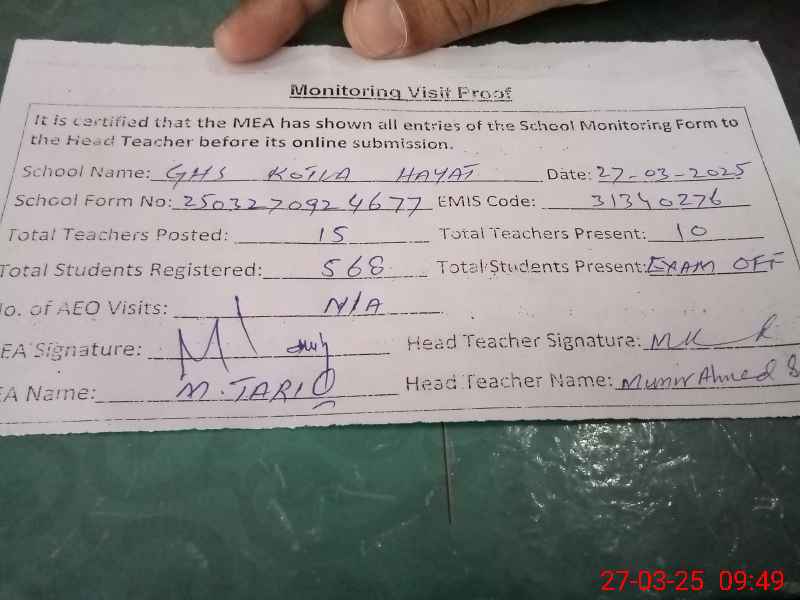 Monitoring Visit Proof
It is certified that the MEA has shown all entries of the School Monitoring Form to
the Head Teacher before its online submission.
School Name: GHS KOTLA HAYAT Date: 27-03-2025
School Form No: 2503270924677 EMIS Code: 31340276
Total Teachers Posted: 15 Total Teachers Present: 10
Total Students Registered: 568 Total Students Present: EXAM OFF
No. of AEO Visits: N/A
EA Signature: Head Teacher Signature:
EA Name: M. TARIQ Head Teacher Name: Munir Ahmed
27-03-25 09:49